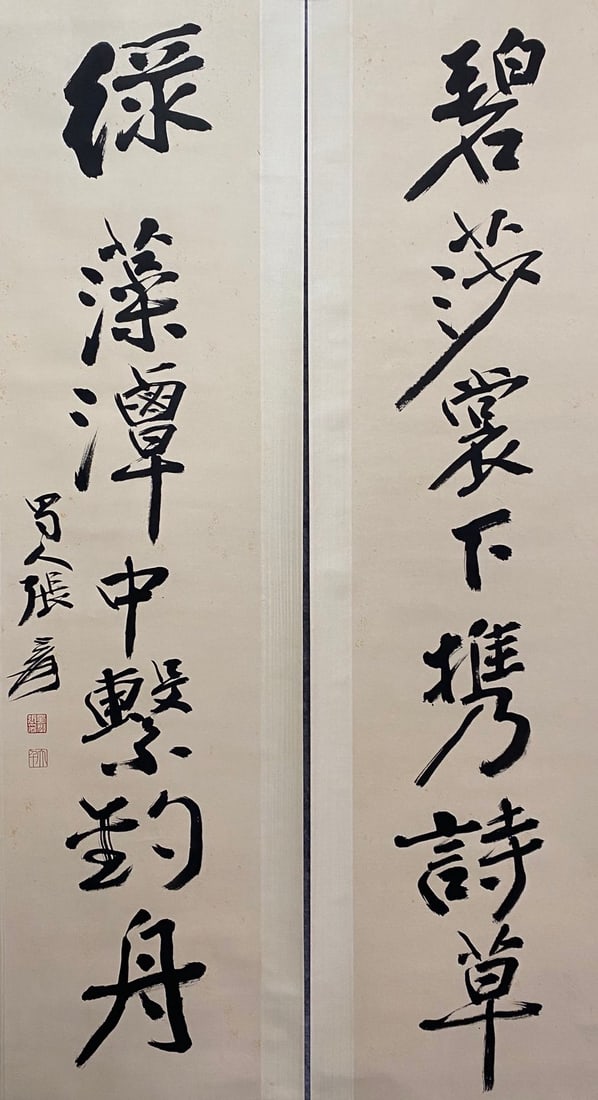 碧莎裳下携詩草
綠藻潭中繫釣舟
蜀人張爰